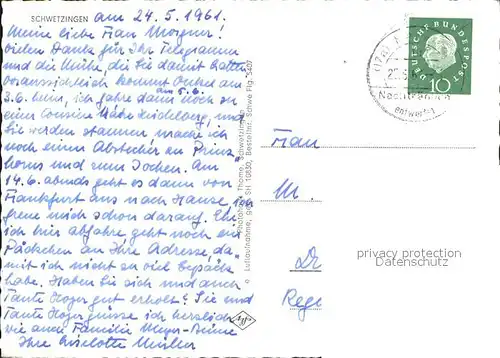 SCHWETZINGEN am 24.5.1961.
Meine liebe Frau
vielen Dank für Ihr Telegramm
und die Mühe, die Sie damit hatten
voraussichtlich kommt Onkel am
3.6. heim, ich fahre dann noch zu
am 5.6.
einer Cousine Nähe Heidelberg, und
Sie werden staunen mache ich
noch einen Abstecher an
und zum Jochen. Am
14.6. abends geht es dann von
Frankfurt aus nach Hause, ich
freue mich schon darauf.
ich hier abfahre geht noch ein
Päckchen an Ihre Adresse, da-
mit ich nicht zu viel Gepäck
habe. Haben Sie sich und auch
Tante gut erholt? Sie und
Tante grüsse ich herzlich
wie auch Familie
Ihre Liselotte Müller
© Luftaufnahme, gen. SH 10830, Bestellnr. Schwe Flg. 5407
Photohaus Thome, Schwetzingen
Agfa
DEUTSCHE BUNDESPOST
10
(17a)
Nachträglich
entwertet
Frau
M.
Dr
Rege
privacy protection
Datenschutz